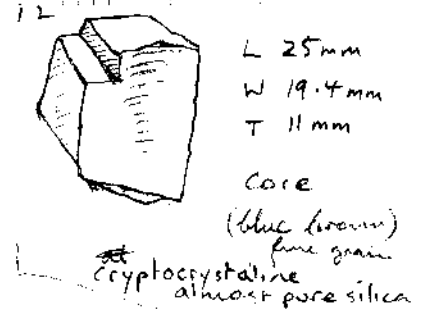 12
L 25mm
W 19.4mm
T 11mm
Core
(blue brown)
fine grain
cryptocrystaline
almost pure silica